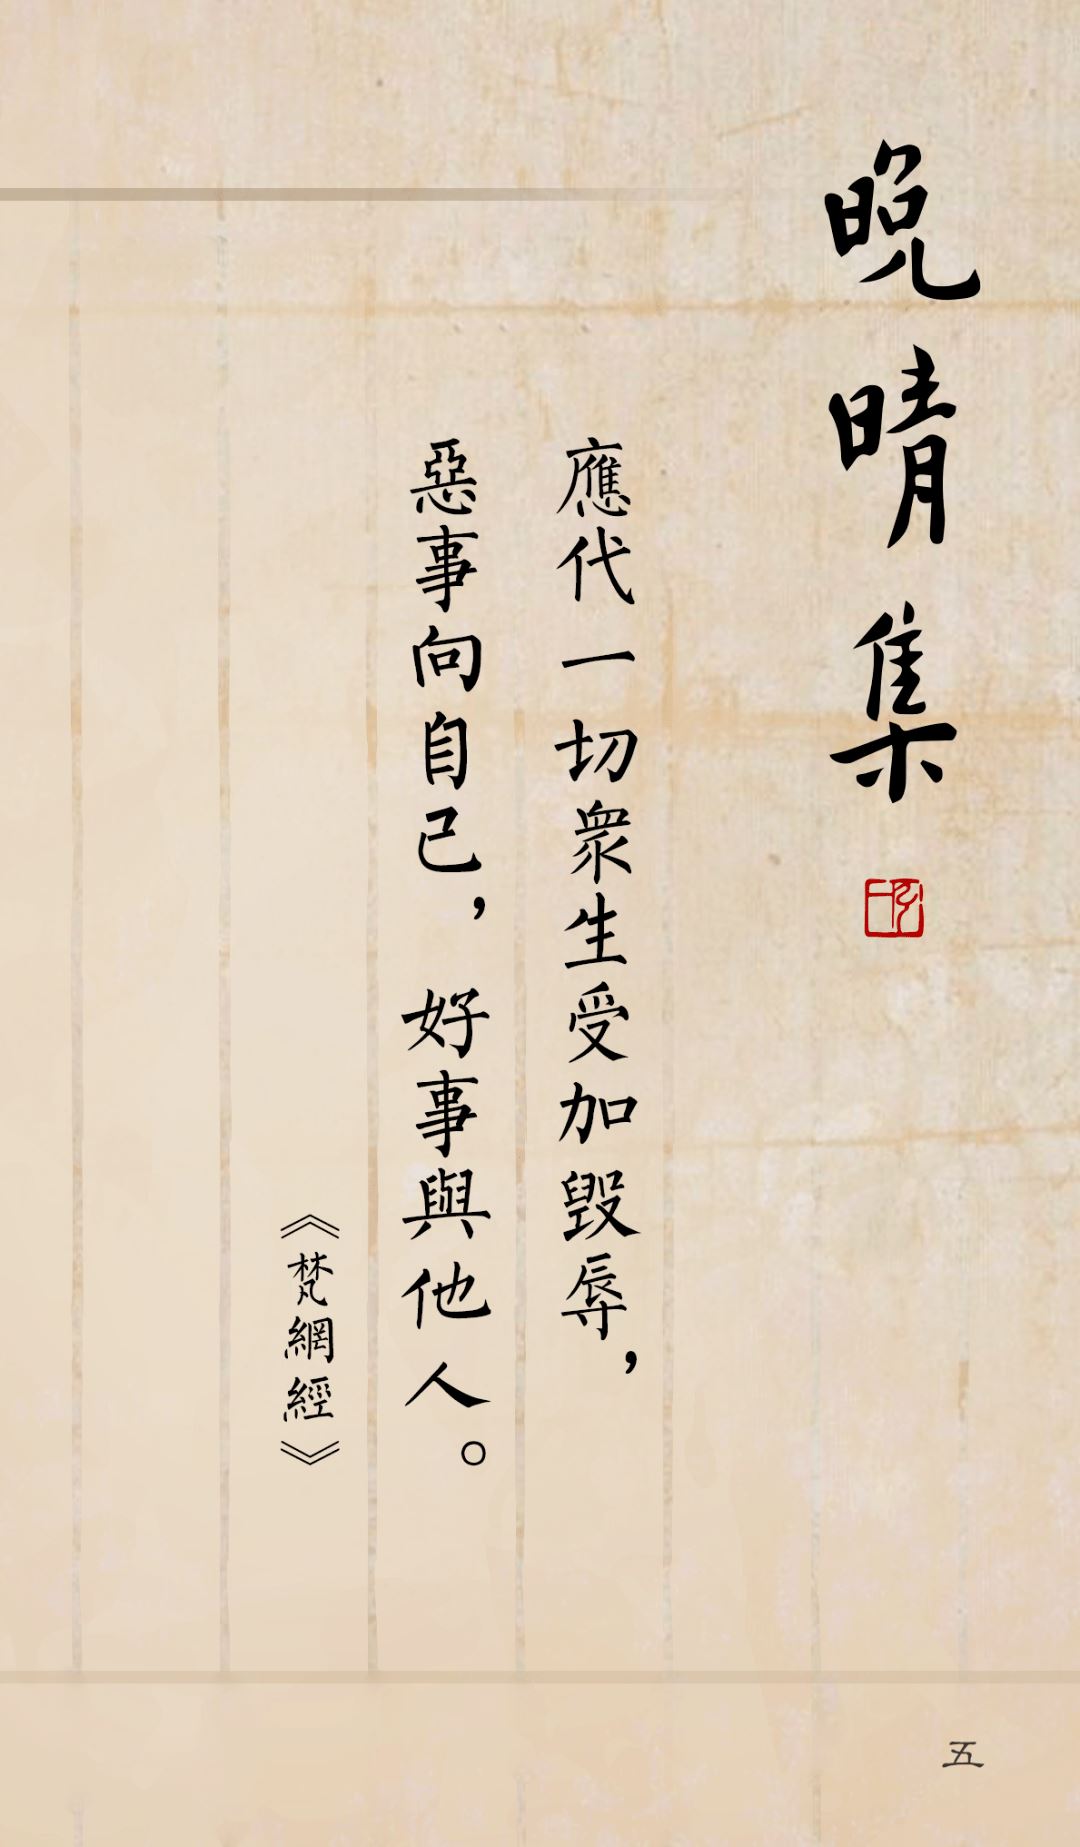 晚晴集
應代一切衆生受加毀辱，
惡事向自己，好事與他人。
《梵網經》
五